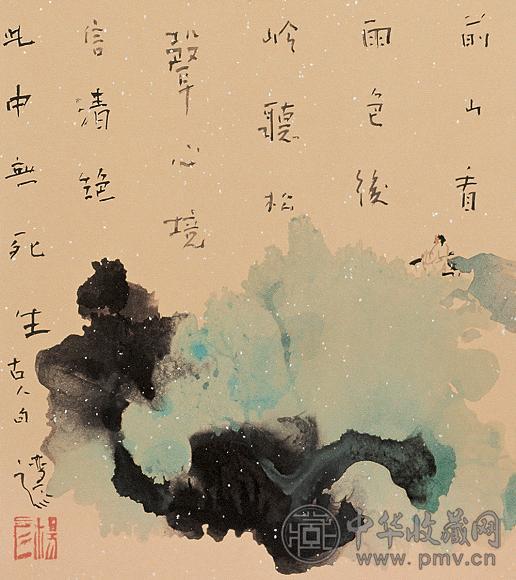 前山看
雨色後
岭聽松
聲心境
信清絶
此中無死生
古人句
中华收藏网
www.pmv.cn